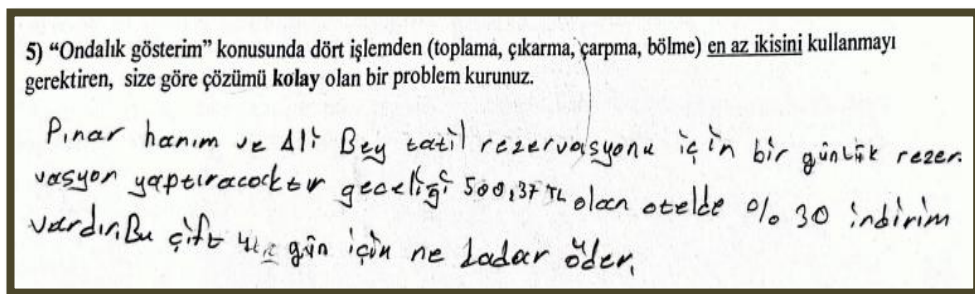 5) “Ondalık gösterim” konusunda dört işlemden (toplama, çıkarma, çarpma, bölme) en az ikisini kullanmayı
gerektiren, size göre çözümü kolay olan bir problem kurunuz.
Pınar hanım ve Ali Bey tatil rezervasyonu için bir günlük rezer.
vasyon yaptıracaktır geceliği 500,37 TL olan otelde % 30 indirim
vardır. Bu çift gün için ne kadar öder.